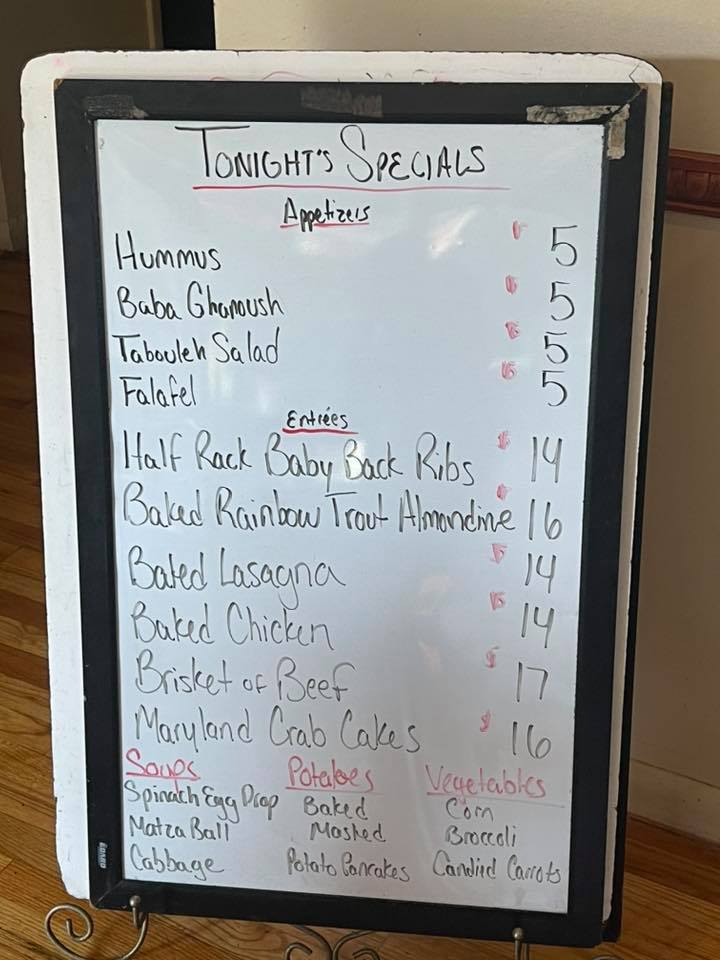 TONIGHT'S SPECIALS
Appetizers
Hummus $ 5
Baba Ghanoush $ 5
Tabouleh Salad $ 5
Falafel $ 5
Entrées
Half Rack Baby Back Ribs $ 14
Baked Rainbow Trout Almondine $ 16
Baked Lasagna $ 14
Baked Chicken $ 14
Brisket of Beef $ 17
Maryland Crab Cakes $ 16
Soups Potatoes Vegetables
Spinach Egg Drop Baked Corn
Matza Ball Mashed Broccoli
Cabbage Potato Pancakes Candied Carrots